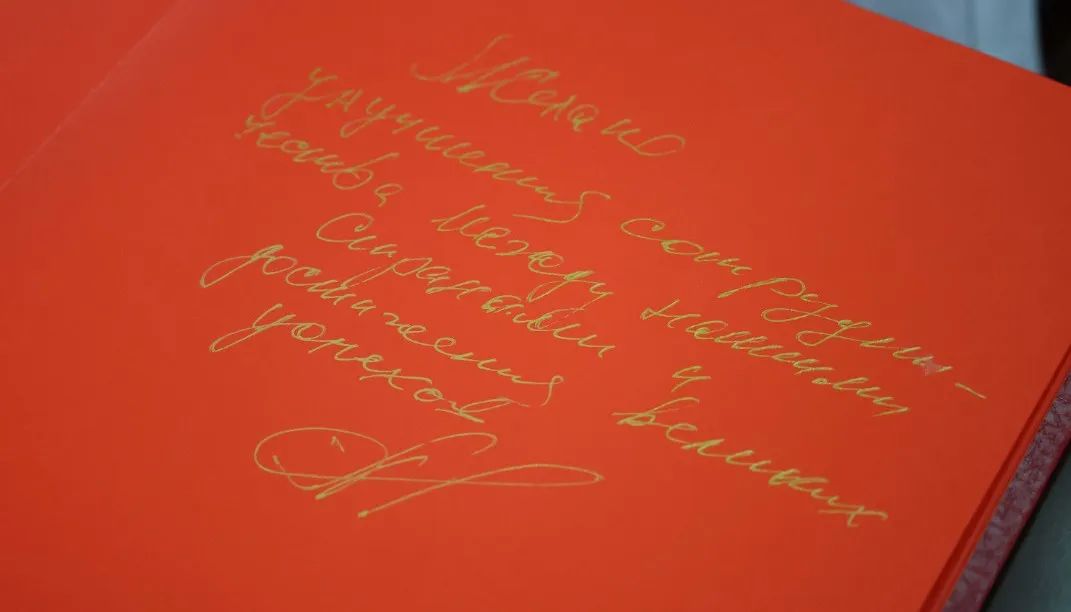 Желаю
улучшения сотрудни-
чества между нашими
странами и великих
достижения
успехов